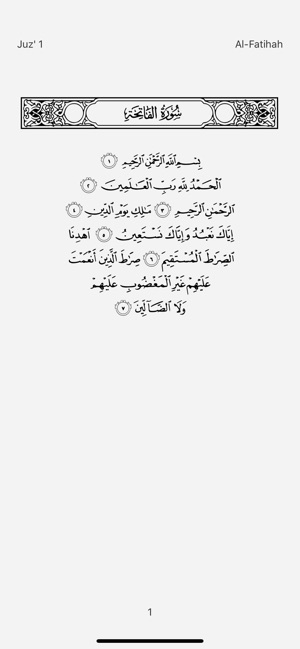 Juz' 1
Al-Fatihah
سُورَةُ الفَاتِحَةِ
بِسْمِ ٱللَّهِ ٱلرَّحْمَٰنِ ٱلرَّحِيمِ ١
ٱلْحَمْدُ لِلَّهِ رَبِّ ٱلْعَٰلَمِينَ ٢
ٱلرَّحْمَٰنِ ٱلرَّحِيمِ ٣ مَٰلِكِ يَوْمِ ٱلدِّينِ ٤
إِيَّاكَ نَعْبُدُ وَإِيَّاكَ نَسْتَعِينُ ٥ ٱهْدِنَا
ٱلصِّرَٰطَ ٱلْمُسْتَقِيمَ ٦ صِرَٰطَ ٱلَّذِينَ أَنْعَمْتَ
عَلَيْهِمْ غَيْرِ ٱلْمَغْضُوبِ عَلَيْهِمْ
وَلَا ٱلضَّآلِّينَ ٧
1